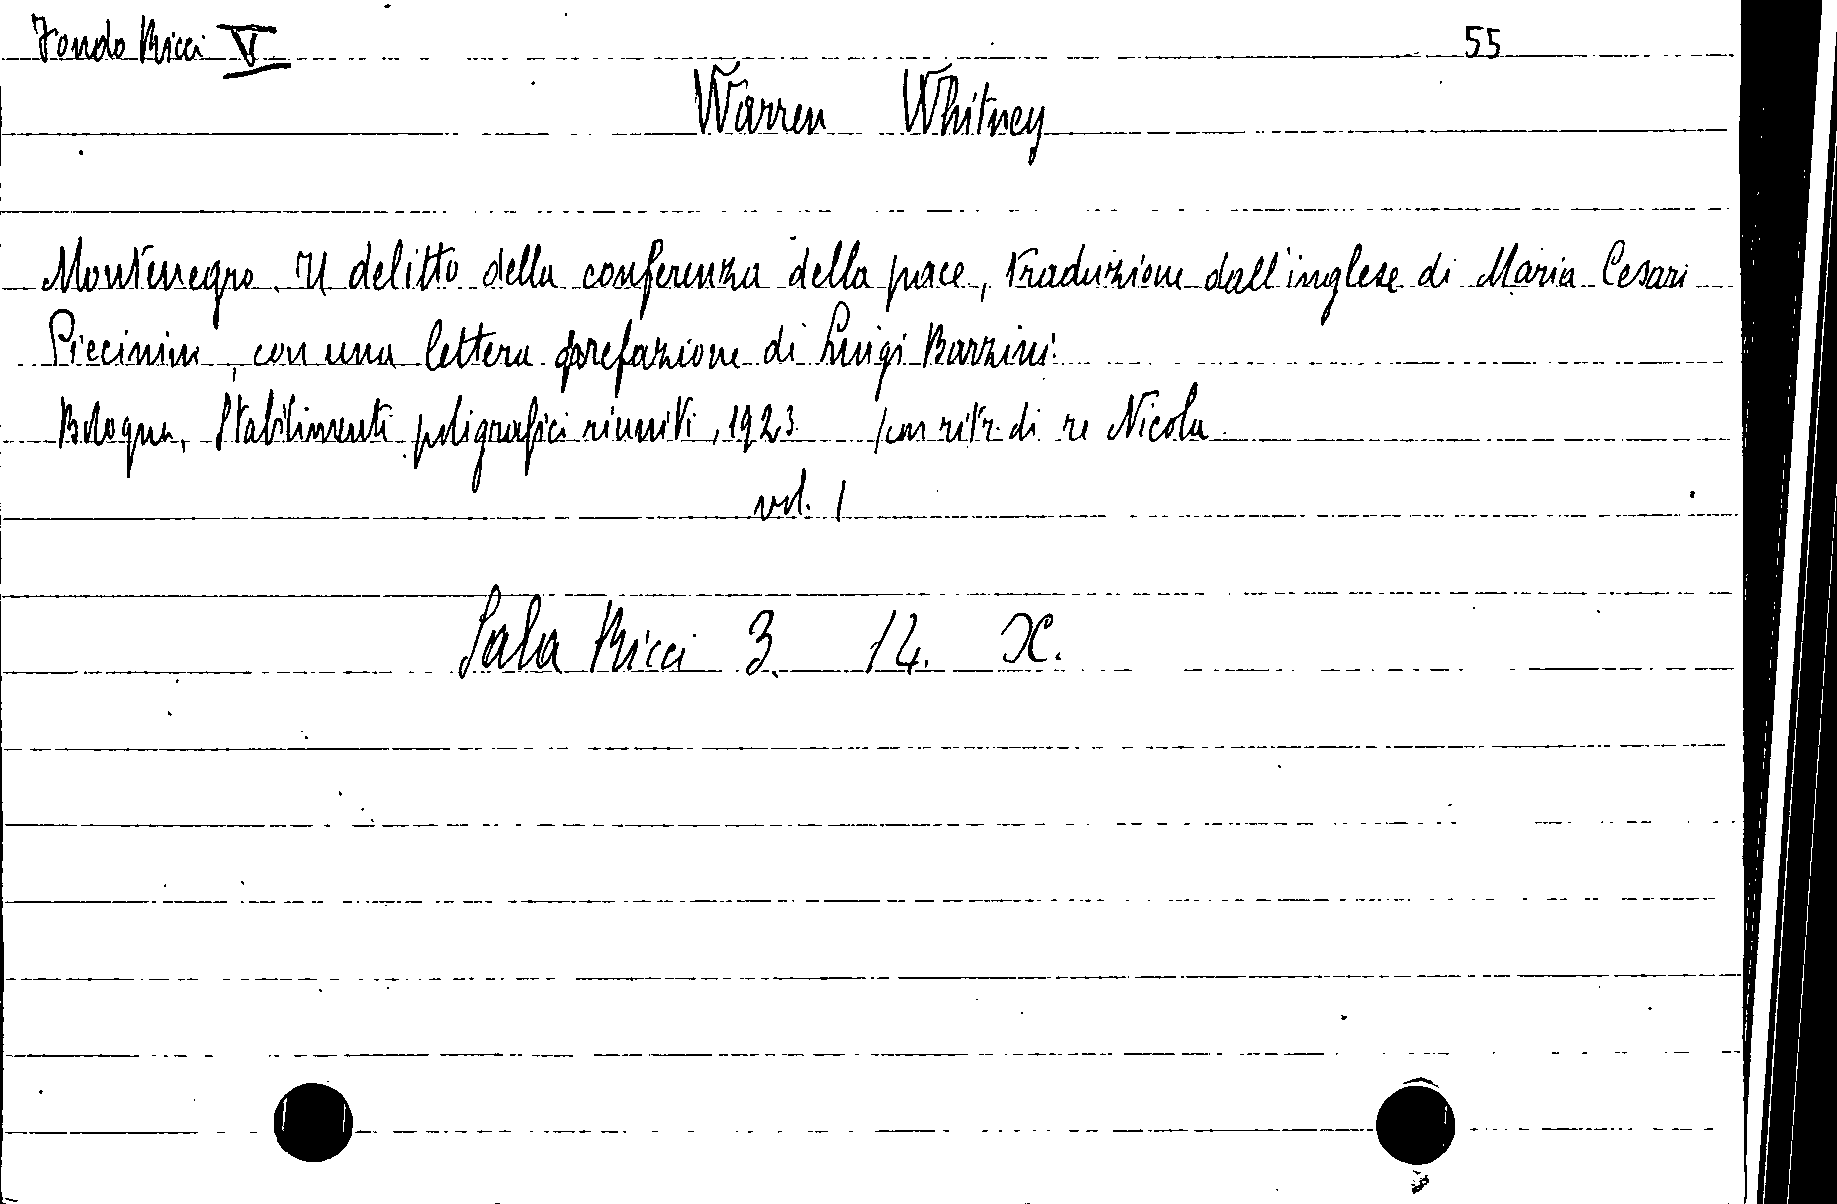 Fondo Ricci V
55
Warren Whitney
Montenegro. Il delitto della conferenza della pace, traduzione dall'inglese di Maria Cesari
Piccinini, con una lettera prefazione di Luigi Barzini.
Bologna, Stabilimenti poligrafici riuniti, 1923 con ritr. di re Nicola
vol. 1
Sala Ricci 3. 14. X.